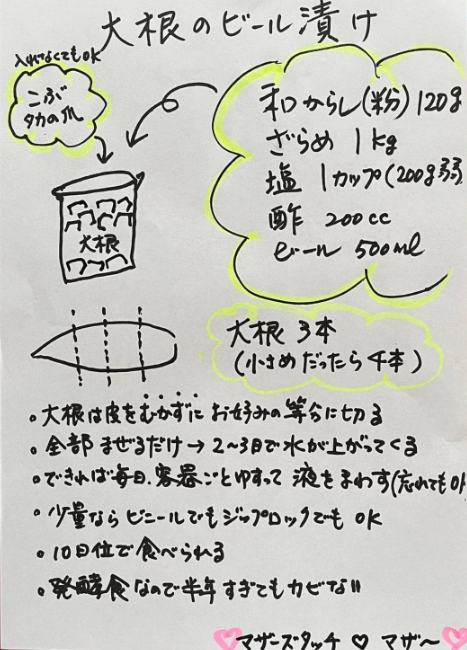 大根のビール漬け
入れなくてもOK
こぶ
タカの爪
和からし(粉)120g
ざらめ 1kg
塩 1カップ(200g弱
酢 200cc
ビール 500ml
大根
大根 3本
(小さめだったら4本)
・大根は皮をむかずにお好みの等分に切る
・全部まぜるだけ→2〜3日で水が上がってくる
・できれば毎日、容器ごとゆすって液をまわす(忘れてもOK
・少量ならビニールでもジップロックでもOK
・10日位で食べられる
・発酵食なので半年すぎてもカビない!!
♡マザーズタッチ♡マザ〜♡